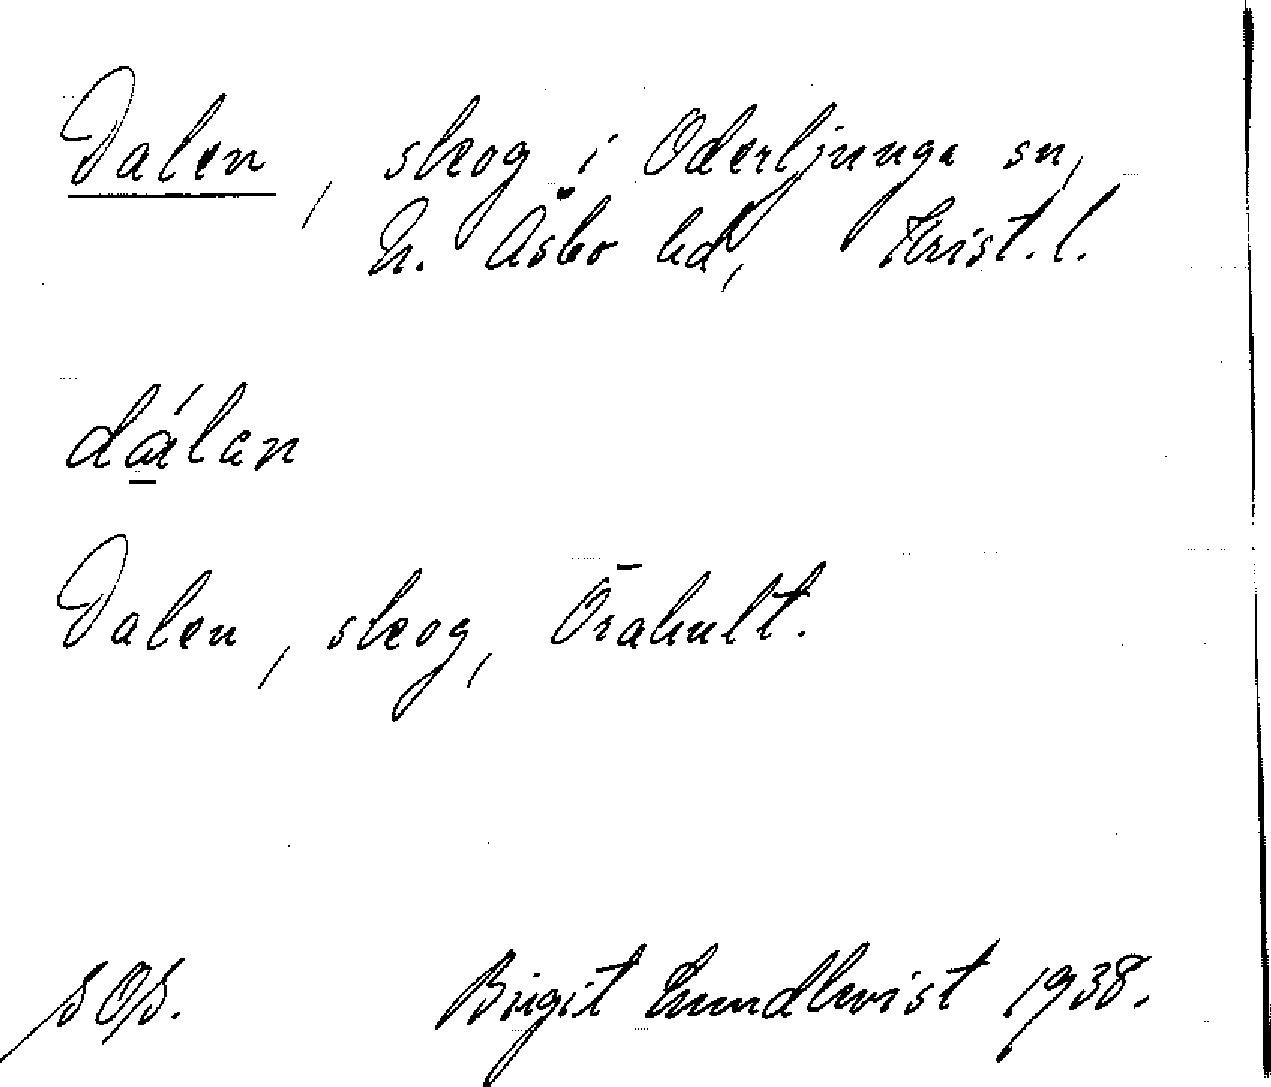 Dalen, skog i Oderljunga sn,
N. Åsbo hd, Krist. l.
dálan
Dalen, skog, Örahult.
SOS. Birgit Lundkvist 1938.